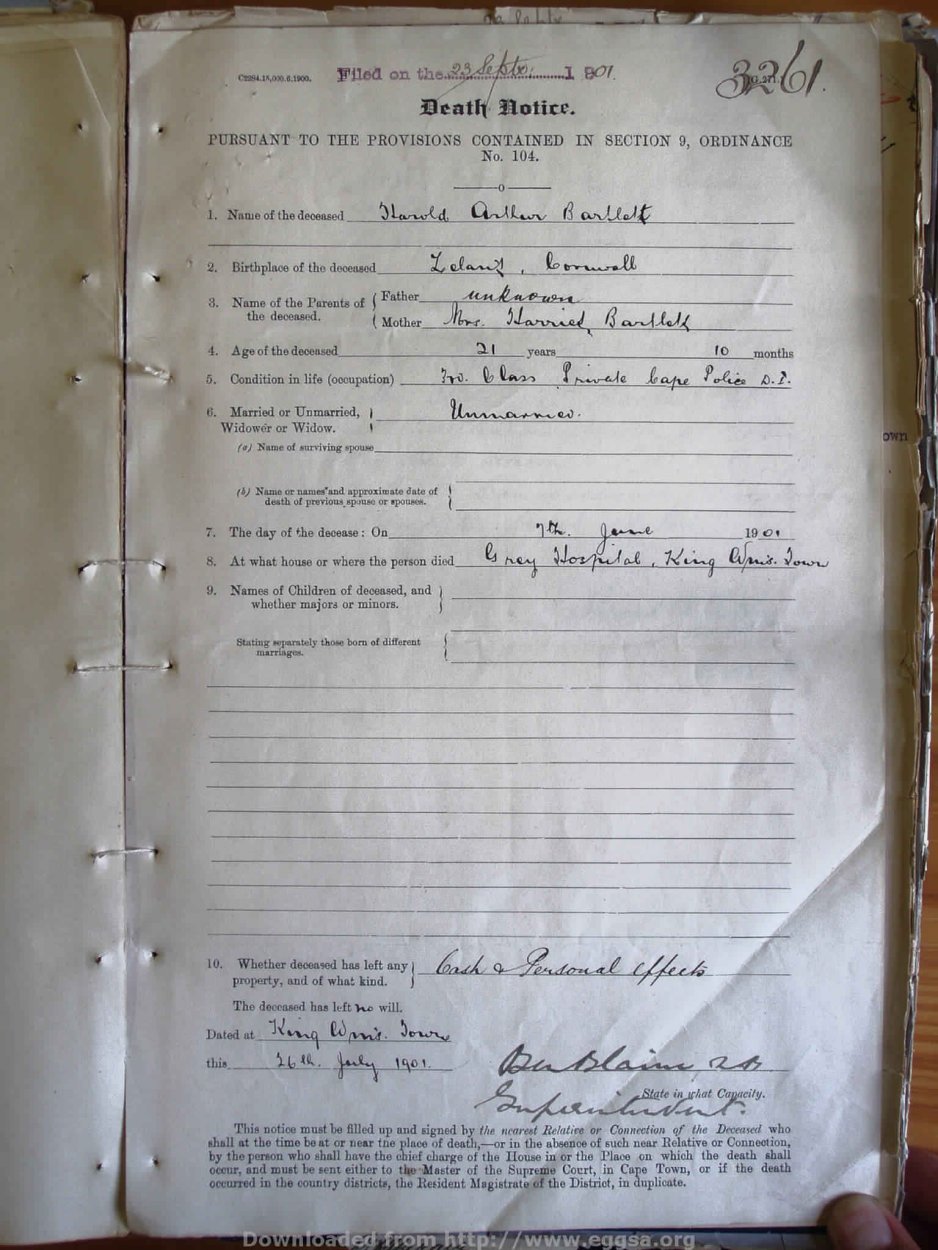 C2284.15,000.6:1900. Filed on the 23 Septr. 1901. 3261.
Death Notice.
PURSUANT TO THE PROVISIONS CONTAINED IN SECTION 9, ORDINANCE
No. 104.
1. Name of the deceased Harold Arthur Bartlett
2. Birthplace of the deceased Zelant, Cornwall
3. Name of the Parents of the deceased. { Father unknown
{ Mother Mrs. Harriet Bartlett
4. Age of the deceased 21 years 10 months
5. Condition in life (occupation) Class Private Cape Police D.I.
6. Married or Unmarried, Unmarried.
Widower or Widow.
(a) Name of surviving spouse
(b) Name or names and approximate date of
death of previous spouse or spouses.
own
7. The day of the decease: On 7th. June 1901
8. At what house or where the person died Grey Hospital, King Wm's. Town
9. Names of Children of deceased, and
whether majors or minors.
Stating separately those born of different
marriages.
10. Whether deceased has left any Cash & Personal Effects
property, and of what kind.
The deceased has left no will.
Dated at King Wm's. Town
this 26th. July 1901.
State in what Capacity.
Superintendent.
This notice must be filled up and signed by the nearest Relative or Connection of the Deceased who
shall at the time be at or near the place of death,—or in the absence of such near Relative or Connection,
by the person who shall have the chief charge of the House in or the Place on which the death shall
occur, and must be sent either to the Master of the Supreme Court, in Cape Town, or if the death
occurred in the country districts, the Resident Magistrate of the District, in duplicate.
Downloaded from http://www.eggsa.org